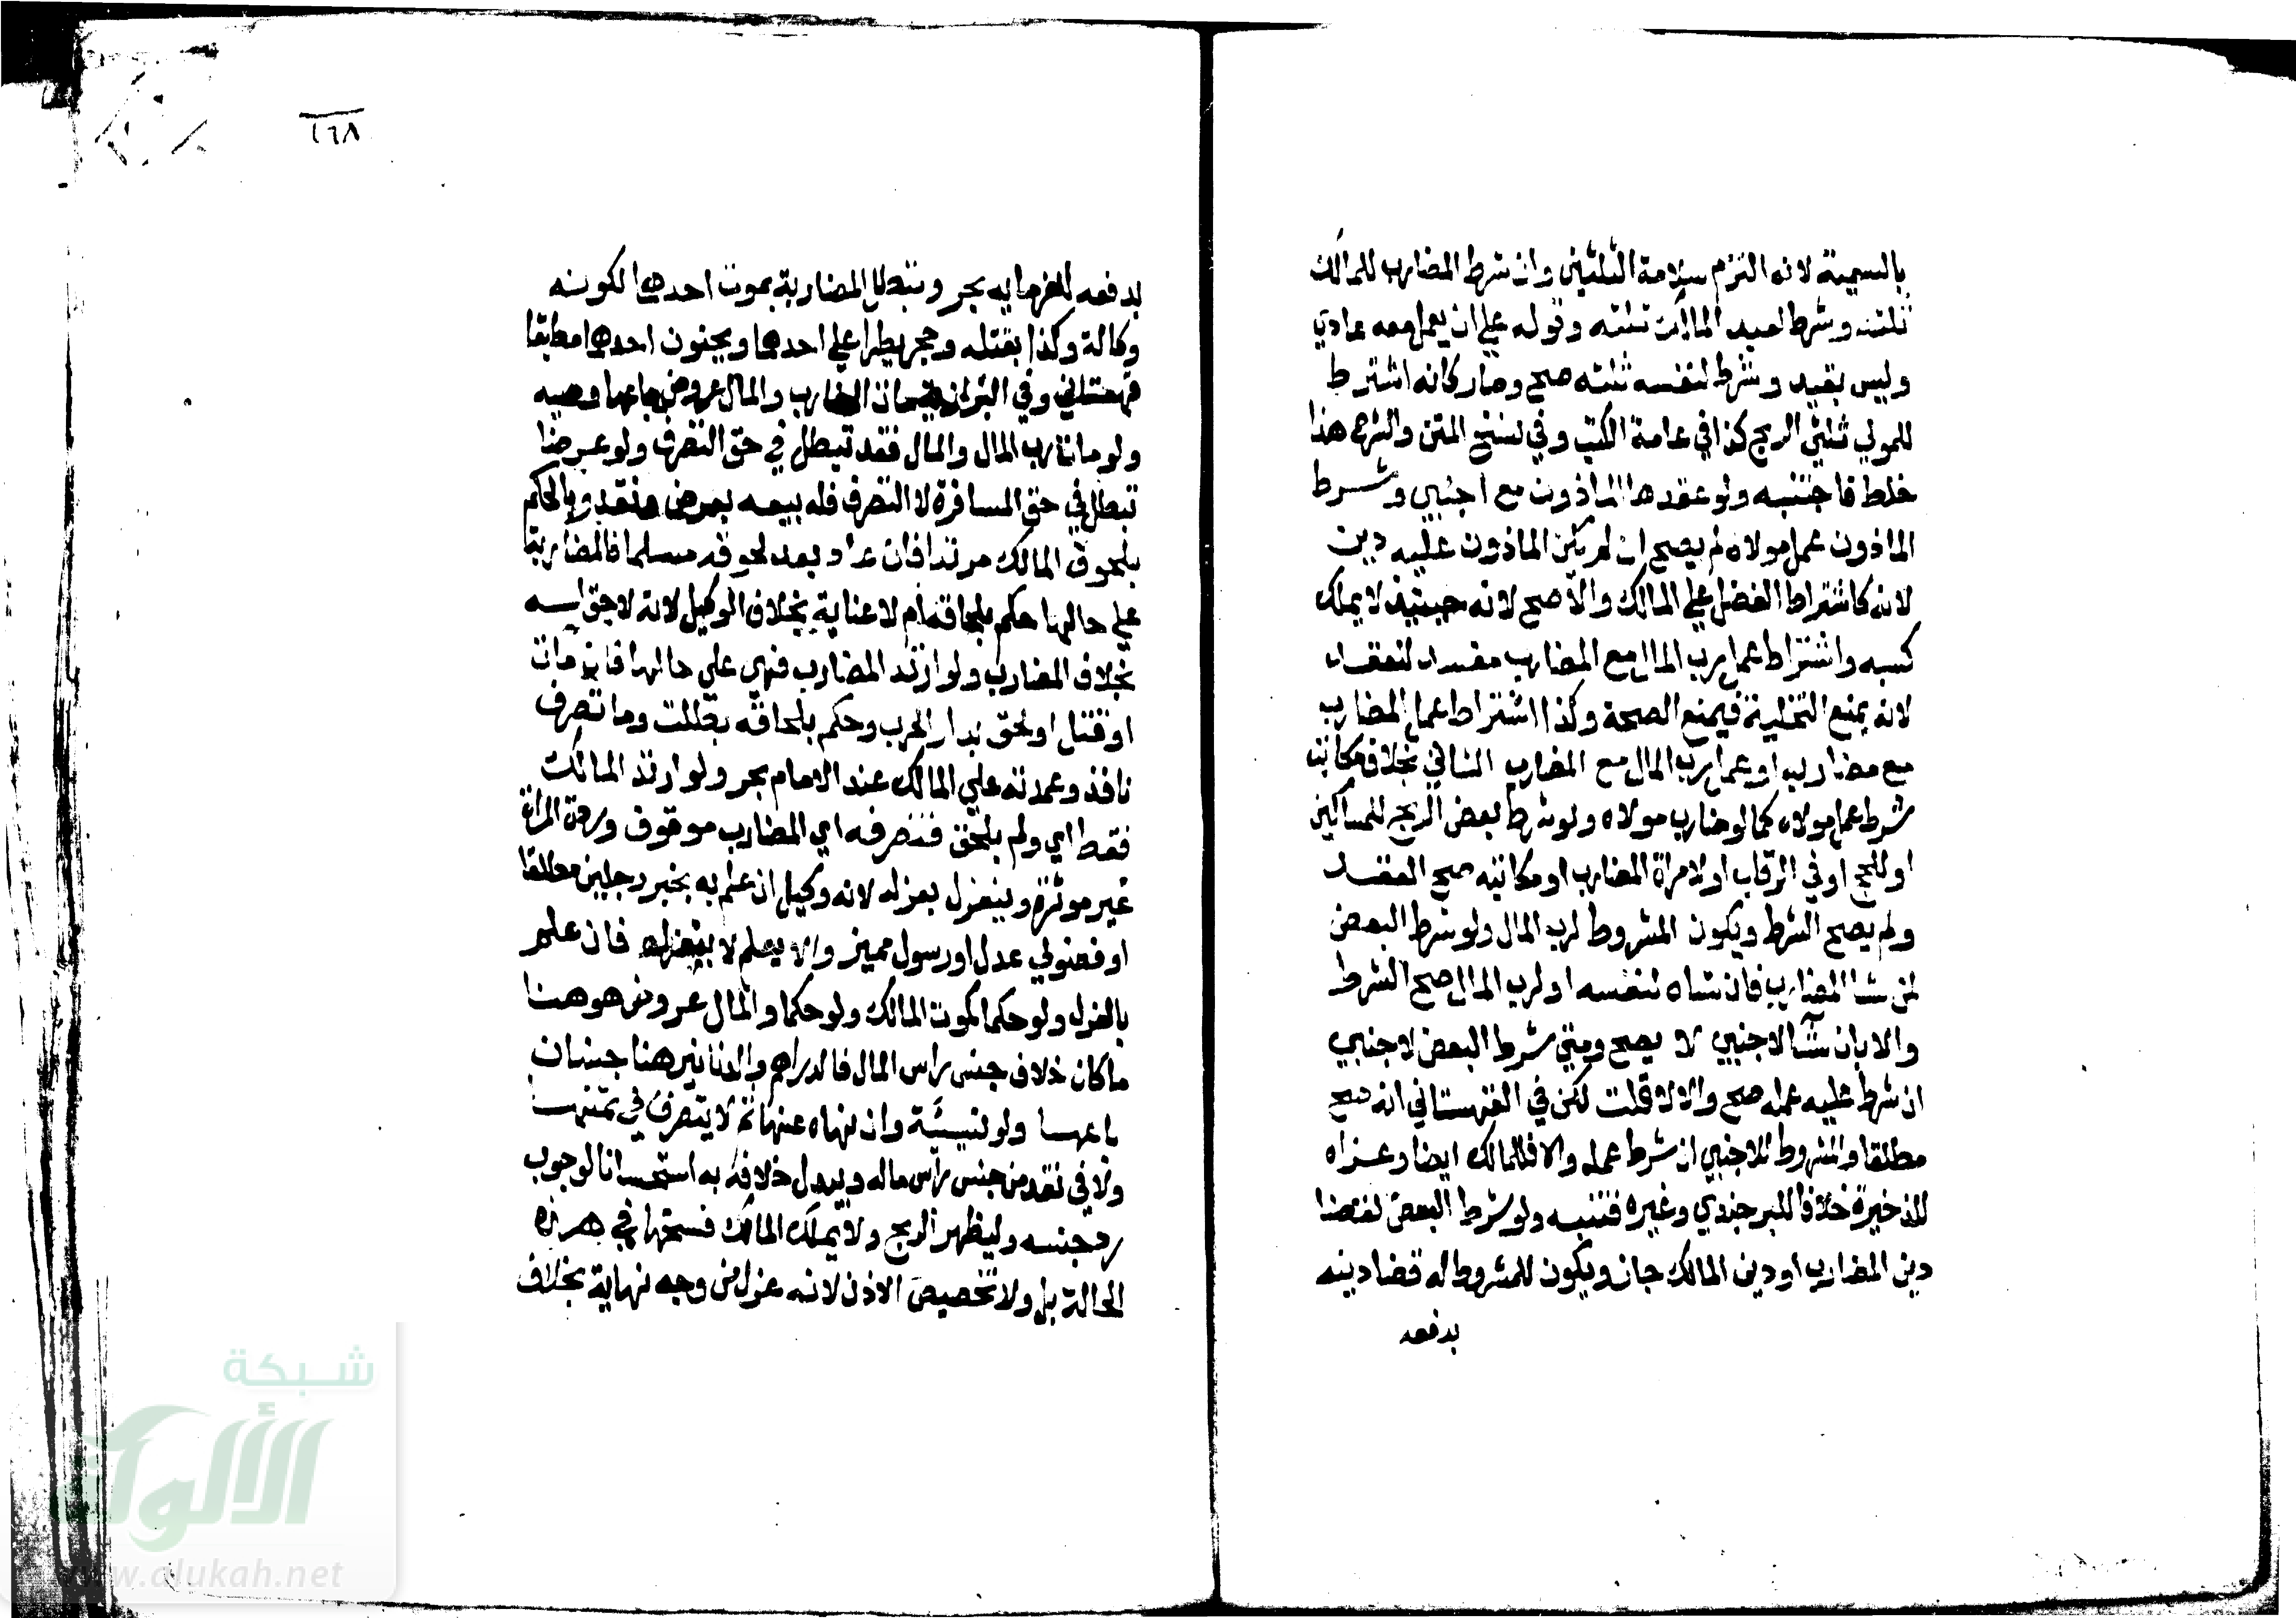 بالتسمية لانه التزم سلامة الثلثين وان شرط المضارب للمالك
ثلثه وشرط لعبد المالك ثلثه وقوله علي ان يعمل معه عادي
وليس بقيد وشرط لنفسه ثلثه صح وصار كانه اشترط
للمولي ثلثي الربح كذا في عامة الكتب وفي نسخ المتن والشرح هنا
خلط فاجتنبه ولو عقدها الماذون مع اجنبي وشرط
الماذون عمل مولاه لم يصح ان لم يكن الماذون عليه دين
لانه كاشتراط العمل علي المالك والا صح لانه حينيذ لا يملك
كسبه واشتراط عمل رب المال مع المضارب مفسد للعقد
لانه يمنع التخلية فيمنع الصحة وكذا اشتراط عمل المضارب
مع مضاربه او عمل رب المال مع المضارب الثاني بخلاف مكاتب
شرط عمل مولاه كما لو ضارب مولاه ولو شرط بعض الربح للمساكين
او للحج او في الرقاب او لامراة المضارب او مكاتبه صح العقد
ولم يصح الشرط ويكون المشروط لرب المال ولو شرط البعض
لمن شا المضارب فان شاه لنفسه او لرب المال صح الشرط
والا بان شآ لاجنبي لا يصح ومتي شرط البعض لاجنبي
ان شرط عليه عمله صح والا لا قلت لكن في القهستاني انه صح
مطلقا والمشروط للاجنبي ان شرط عمله والا فللمالك ايضا وعزاه
للذخيرة خلافا للبرجندي وغيره فتنبه ولو شرط البعض لقضا
دين المضارب او دين المالك جاز ويكون للمشروط له قضا دينه
بدفعه
١٦٨
بدفعه لغرمايه بحر وتبطل المضاربة بموت احدهما لكونه
وكالة وكذا بقتله وحجر يطرا علي احدهما وبجنون احدهما مطبقا
قهستاني وفي البزازية مات المضارب والمال عروض باعها وصيه
ولو مات رب المال والمال نقد تبطل في حق التصرف ولو عرضا
تبطل في حق المسافرة لا التصرف فله بيعه بعرض ونقد وبالحكم
بلحوق المالك مرتدا فان عاد بعد لحوقه مسلما فالمضاربة
علي حالها حكم بلحاقه ام لا عناية بخلاف الوكيل لانه لا حق له
بخلاف المضارب ولو ارتد المضارب فهي علي حالها فان مات
او قتل او لحق بدار الحرب وحكم بلحاقه بطلت وما تصرف
نافذ وعهدته علي المالك عند الامام بحر ولو ارتد المالك
فقط اي ولم يلحق فتصرفه اي المضارب موقوف وردة المراة
غير موثرة وينعزل بعزله لانه وكيل ان علم به بخبر رجلين مطلقا
او فضولي عدل او رسول مميز والا يعلم لا ينعزل فان علم
بالعزل ولو حكما كموت المالك ولو حكما والمال عروض هو هنا
ما كان خلاف جنس راس المال فالدراهم والدنانير هنا جنسان
باعها ولو نسيئة وان نهاه عنها ثم لا يتصرف في ثمنها
ولا في نقد من جنس راس ماله ويبدل خلافه به استحسانا لوجوب
رد جنسه وليظهر الربح ولا يملك المالك فسخها في هذه
الحالة بل ولا تخصيص الاذن لانه عزل من وجه نهاية بخلاف
شبكة
الألوكة
www.alukah.net